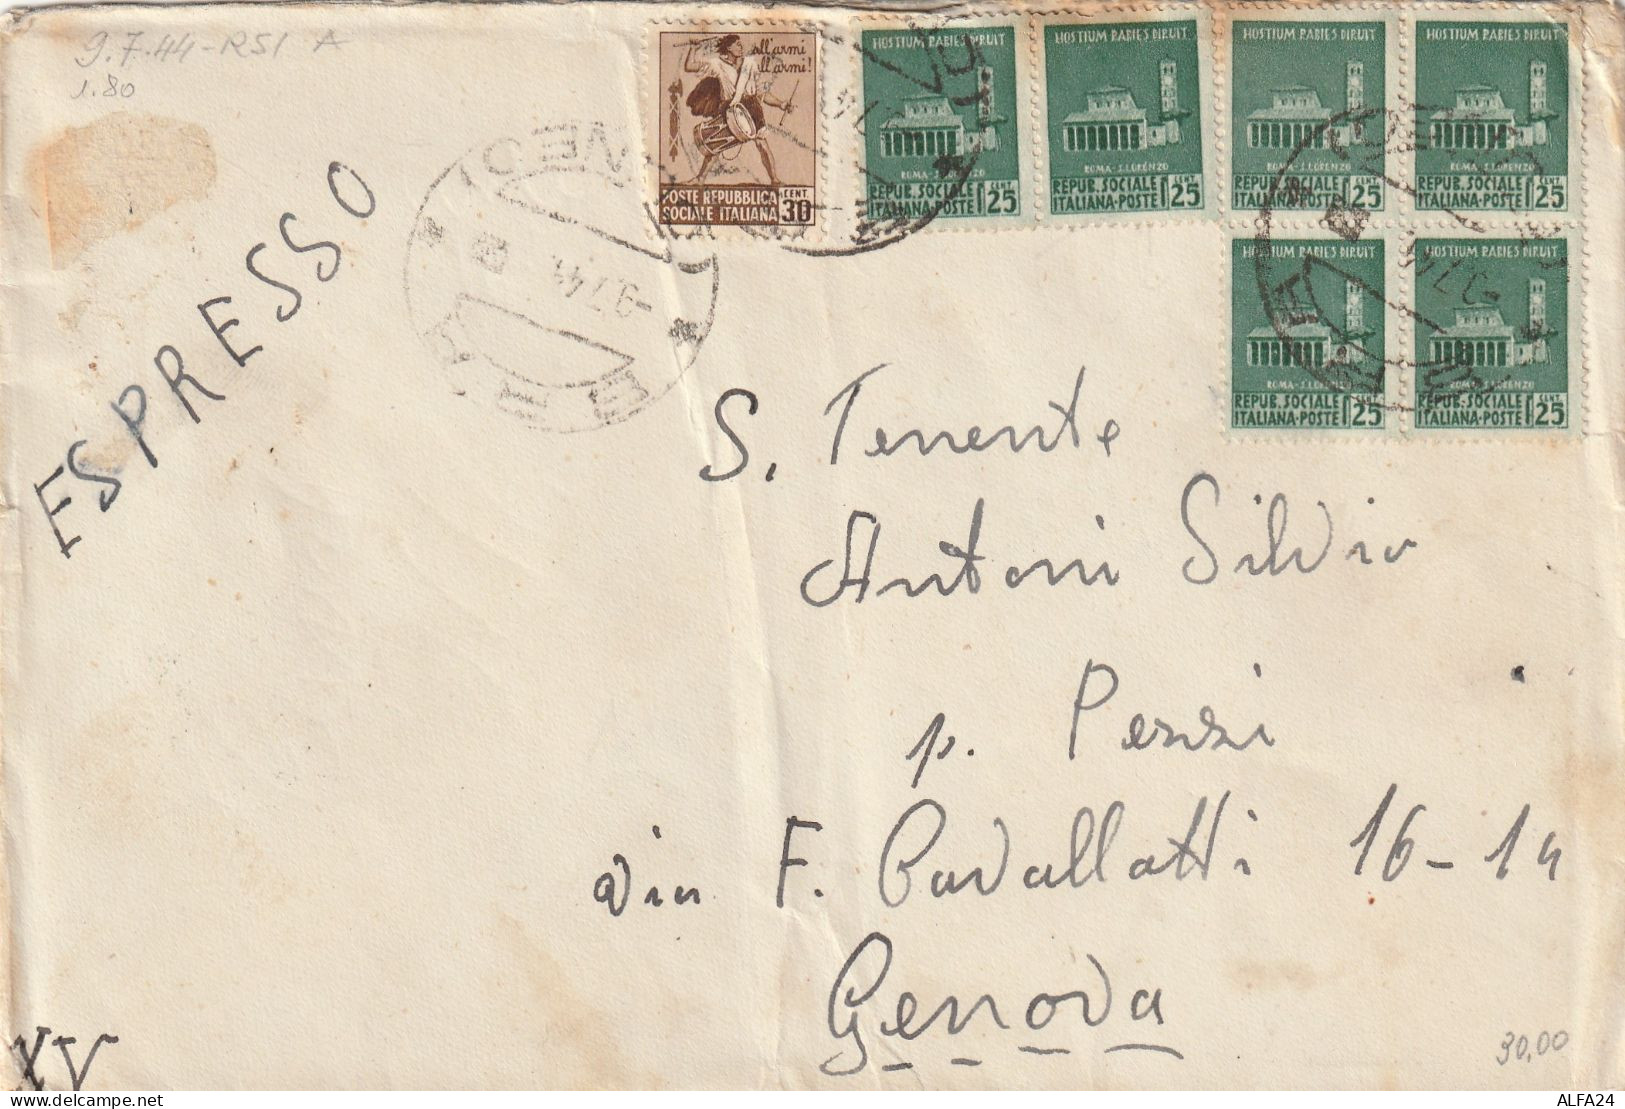 9.7.44-RSI A
1.80
ESPRESSO
all'armi
all'armi!
POSTE REPUBBLICA
SOCIALE ITALIANA
CENT.
30
HOSTIUM RABIES DIRUIT
ROMA-S.LORENZO
REPUB.SOCIALE
ITALIANA-POSTE
CENT
25
HOSTIUM RABIES DIRUIT
ROMA-S.LORENZO
REPUB.SOCIALE
ITALIANA-POSTE
CENT
25
HOSTIUM RABIES DIRUIT
ROMA-S.LORENZO
REPUB.SOCIALE
ITALIANA-POSTE
CENT
25
HOSTIUM RABIES DIRUIT
ROMA-S.LORENZO
REPUB.SOCIALE
ITALIANA-POSTE
CENT
25
HOSTIUM RABIES DIRUIT
ROMA-S.LORENZO
REPUB.SOCIALE
ITALIANA-POSTE
CENT
25
HOSTIUM RABIES DIRUIT
ROMA-S.LORENZO
REPUB.SOCIALE
ITALIANA-POSTE
CENT
25
-9.7.44
S. Tenente
Antoni Silvio
p. Pezzi
via F. Cavallotti 16-14
Genova
XV
30,00
ALFA24